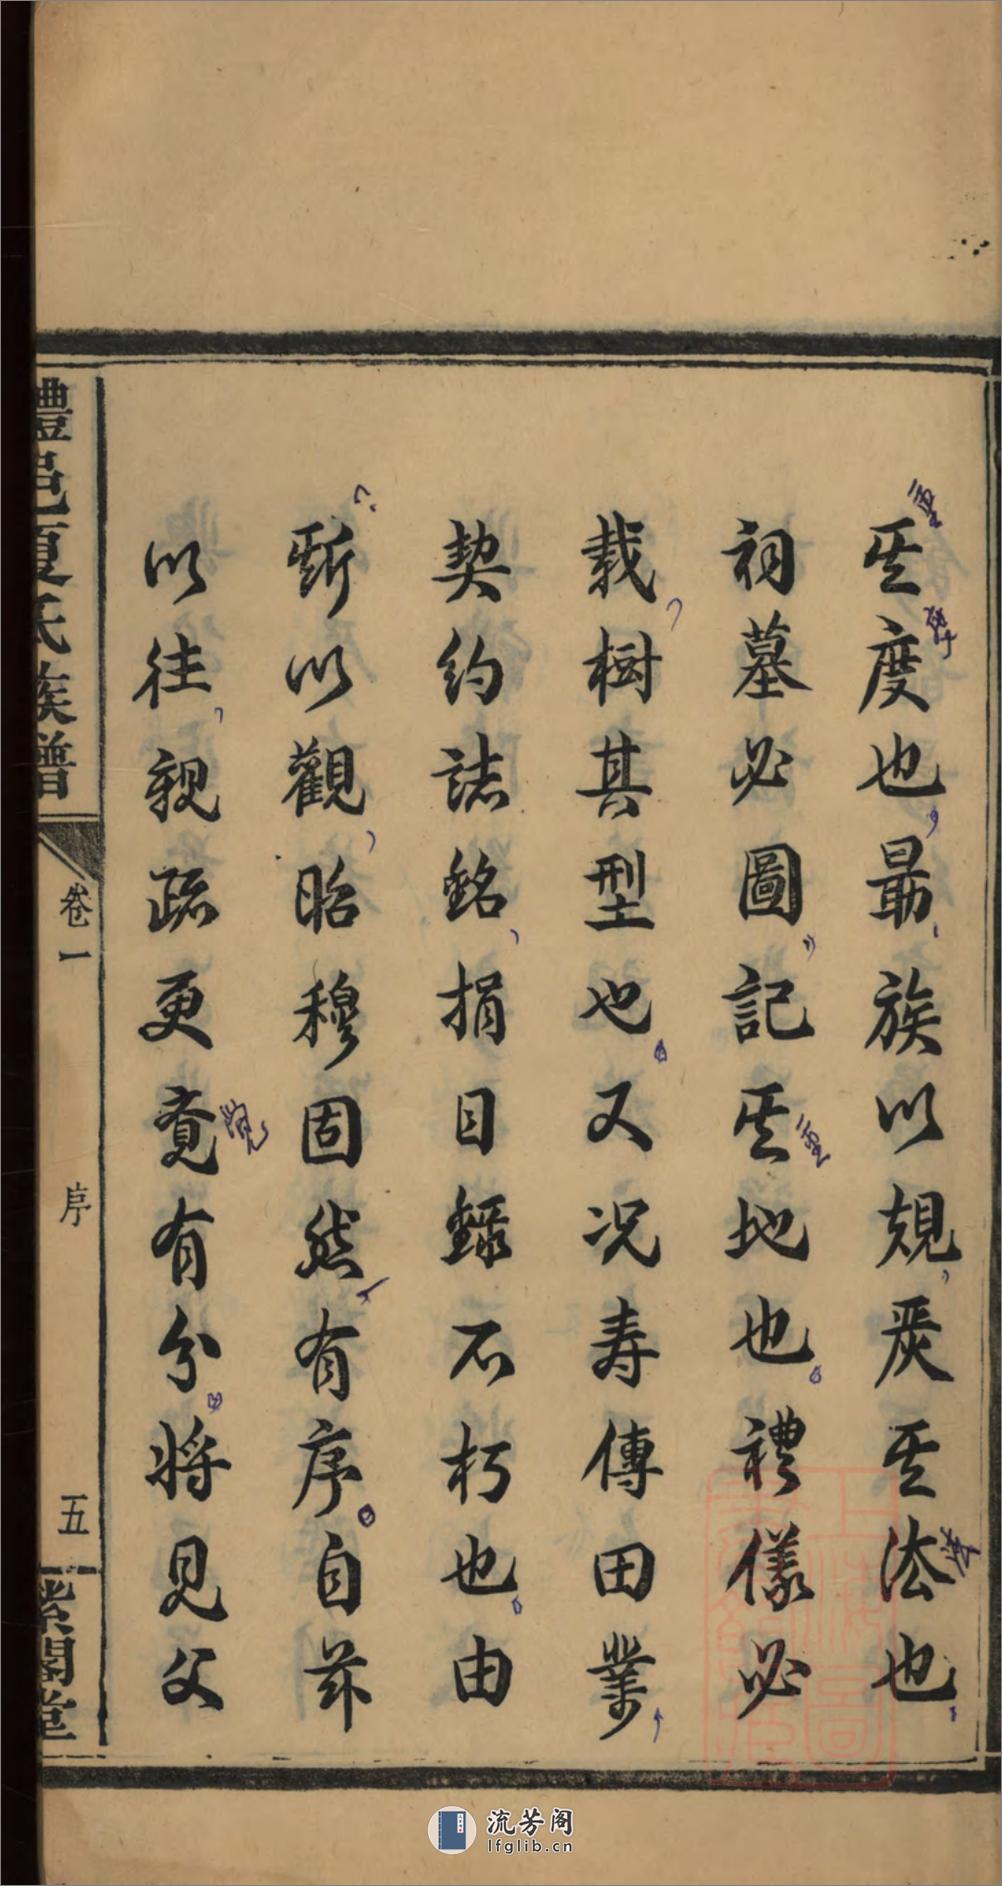 其度也最族以規炭其法也
祠墓必圖記其地也禮儀必
栽樹其型也又况寿傳田業
契約誌銘捐目録不朽也由
斯以觀昭穆固然有序自茲
以往親疏更竟有分將見父
醴邑夏氏族譜
卷一
序
五
紫閣堂
流芳阁
lfglib.cn